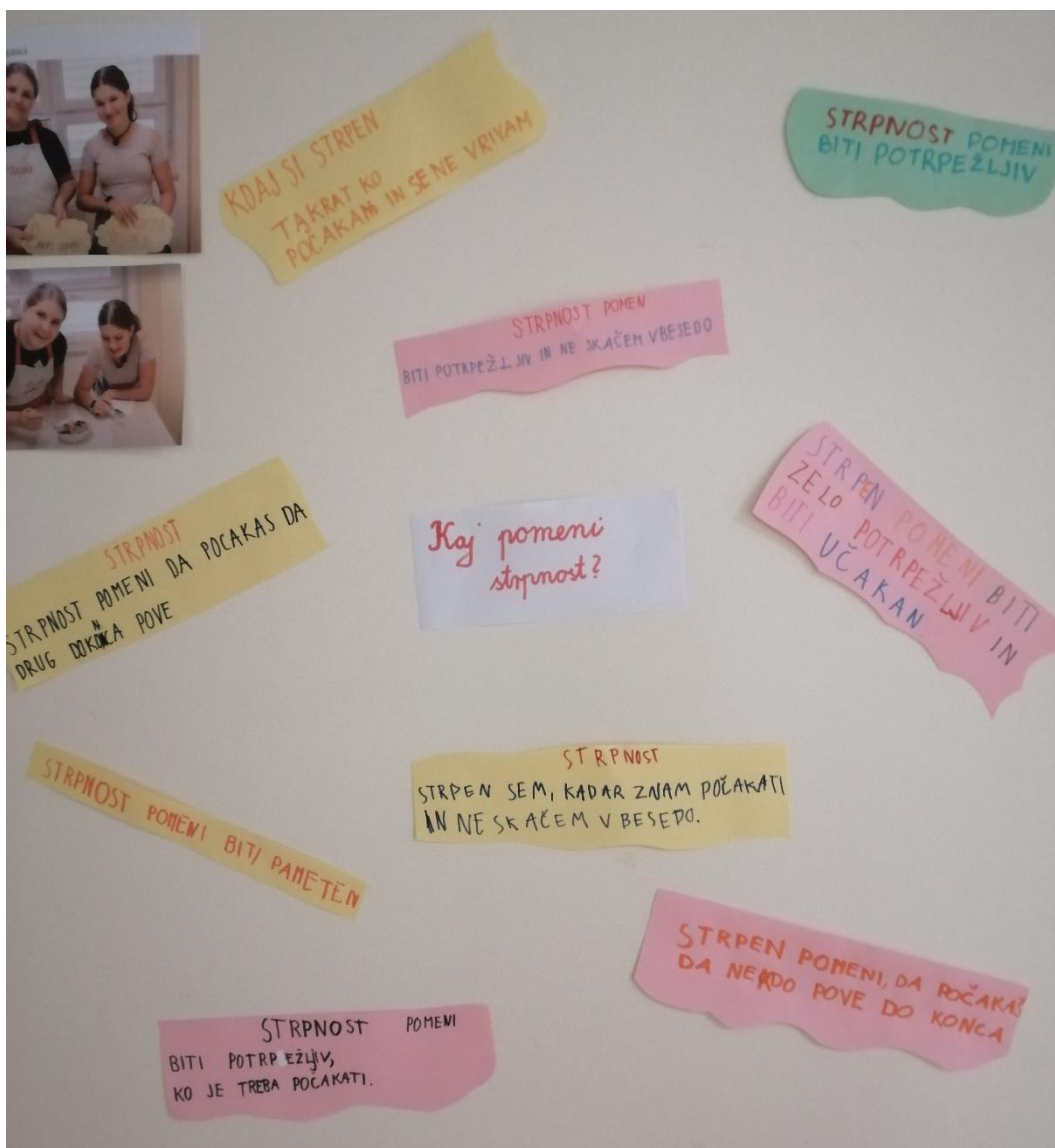 KDAJ SI STRPEN
TAKRAT KO
POČAKAM IN SE NE VRIVAM
STRPNOST POMENI
BITI POTRPEŽLJIV
STRPNOST POMEN
BITI POTRPEŽLJIV IN NE SKAČEM VBESEDO
STRPNOST
STRPNOST POMENI DA POCAKAS DA
DRUG DOKNCA POVE
Kaj pomeni
strpnost?
STRPEN POMENI BITI
ZELO POTRPEŽLJIV IN
BITI UČAKAN
STRPNOST POMENI BITI PAMETEN
STRPNOST
STRPEN SEM, KADAR ZNAM POČAKATI
IN NE SKAČEM V BESEDO.
STRPEN POMENI, DA POČAKAŠ
DA NEKDO POVE DO KONCA
STRPNOST POMENI
BITI POTRPEŽLJIV,
KO JE TREBA POČAKATI.